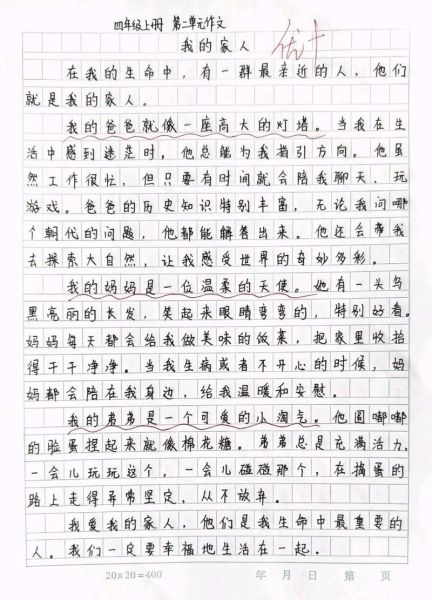 四年级上册 第二单元作文
我的家人 优+
在我的生命中，有一群最亲近的人，他们
就是我的家人。
我的爸爸就像一座高大的灯塔。当我在生
活中感到迷茫时，他总能为我指引方向。他虽
然工作很忙，但只要有时间就会陪我聊天、玩
游戏。爸爸的历史知识特别丰富，无论我问哪
个朝代的问题，他都能解答出来。他还会带我
去探索大自然，让我感受世界的奇妙多彩。
我的妈妈是一位温柔的天使。她有一头乌
黑亮丽的长发，笑起来眼睛弯弯的，特别好看。
妈妈每天都会给我做美味的饭菜，把家里收拾
得干干净净。当我生病或者不开心的时候，妈
妈都会陪在我身边，给我温暖和安慰。
我的弟弟是一个可爱的小淘气。他圆嘟嘟
的脸蛋捏起来就像棉花糖。弟弟总是充满活力，
一会儿玩玩这个，一会儿碰碰那个，在捣蛋的
路上走得异常坚定，从不放弃。
我爱我的家人，他们是我生命中最重要的
人。我们一定要幸福地生活在一起。
20×20=400 年 月 日 第 页